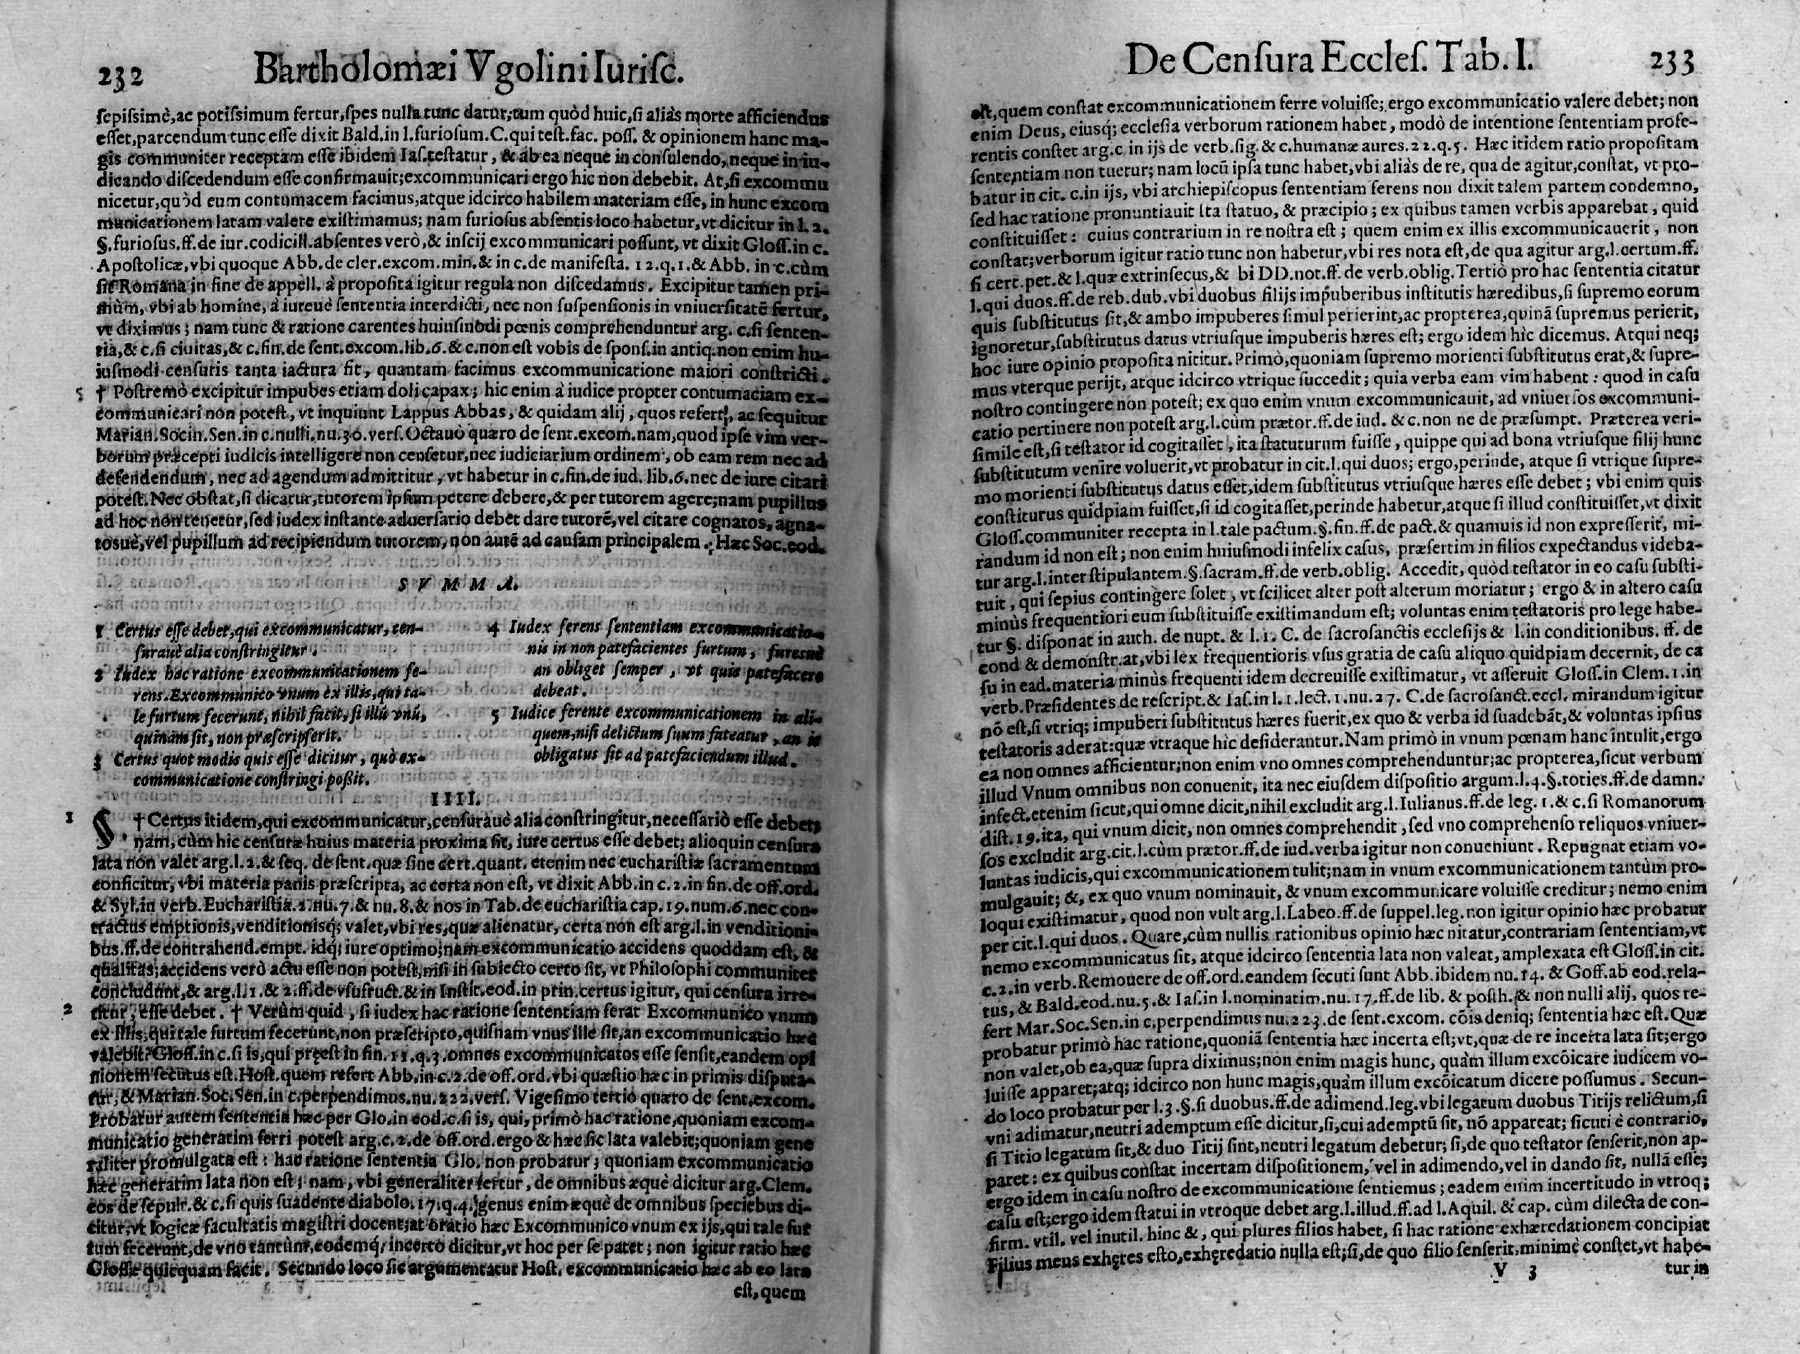 232 Bartholomæi Vgolini Iurisc.
sepissimè, ac potissimum fertur, spes nulla tunc datur; tum quòd huic, si aliàs morte afficiendus
esset, parcendum tunc esse dixit Bald. in l. furiosum. C. qui test. fac. poss. & opinionem hanc ma-
gis communiter receptam esse ibidem Ias. testatur, & ab ea neque in consulendo, neque in iu-
dicando discedendum esse confirmauit; excommunicari ergo hic non debebit. At, si excommu
nicetur, quòd eum contumacem facimus, atque idcirco habilem materiam esse, in hunc excom
municationem latam valere existimamus; nam furiosus absentis loco habetur, vt dicitur in l. 2.
§. furiosus. ff. de iur. codicill. absentes verò, & inscij excommunicari possunt, vt dixit Gloss. in c.
Apostolicæ, vbi quoque Abb. de cler. excom. min. & in c. de manifesta. 12. q. 1. & Abb. in c. cùm
sit Romana in fine de appell. à proposita igitur regula non discedamus. Excipitur tamen pri-
mùm, vbi ab homine, à iureuè sententia interdicti, nec non suspensionis in vniuersitatē fertur,
vt diximus; nam tunc & ratione carentes huiusmodi pœnis comprehenduntur arg. c. si senten-
tia, & c. si ciuitas, & c. fin. de sent. excom. lib. 6. & c. non est vobis de spons. in antiq. non enim hu-
iusmodi censuris tanta iactura fit, quantam facimus excommunicatione maiori constricti.
5 † Postremò excipitur impubes etiam doli capax; hic enim à iudice propter contumaciam ex-
communicari non potest, vt inquiunt Lappus Abbas, & quidam alij, quos refert, ac sequitur
Marian. Socin. Sen. in c. nulli. nu. 30. vers. Octauò quæro de sent. excom. nam, quod ipse vim ver-
borum præcepti iudicis intelligere non censetur, nec iudiciarium ordinem, ob eam rem nec ad
defendendum, nec ad agendum admittitur, vt habetur in c. fin. de iud. lib. 6. nec de iure citari
potest. Nec obstat, si dicatur, tutorem ipsum petere debere, & per tutorem agere; nam pupillus
ad hoc non tenetur, sed iudex instante aduersario debet dare tutorē, vel citare cognatos, agna-
tosuè, vel pupillum ad recipiendum tutorem, non autē ad causam principalem. Hæc Soc. eod.
SVMMA.
1 Certus esse debet, qui excommunicatur, cen-
suraue alia constringitur.
2 Iudex hac ratione excommunicationem fe-
rens. Excommunico vnum ex illis, qui ta-
le furtum fecerunt, nihil facit, si illū vnū,
quinam sit, non præscripserit.
3 Certus quot modis quis esse dicitur, quò ex-
communicatione constringi possit.
4 Iudex ferens sententiam excommunicatio-
nis in non patefacientes furtum, furesue
an obliget semper, vt quis patefacere
debeat.
5 Iudice ferente excommunicationem in ali-
quem, nisi delictum suum fateatur, an is
obligatus sit ad patefaciendum illud.
IIII.
1 §. † Certus itidem, qui excommunicatur, censurauè alia constringitur, necessariò esse debet;
nam, cùm hic censuræ huius materia proxima sit, iure certus esse debet; alioquin censura
lata non valet arg. l. 2. & seq. de sent. quæ sine cert. quant. etenim nec eucharistiæ sacramentum
conficitur, vbi materia panis præscripta, ac certa non est, vt dixit Abb. in c. 2. in fin. de off. ord.
& Syl. in verb. Eucharistia. 2. nu. 7. & nu. 8. & nos in Tab. de eucharistia cap. 19. num. 6. nec con-
tractus emptionis, venditionisq; valet, vbi res, quæ alienatur, certa non est arg. l. in venditioni-
bus. ff. de contrahend. empt. idq; iure optimo; nam excommunicatio accidens quoddam est, &
qualitas; accidens verò actu esse non potest, nisi in subiecto certo sit, vt Philosophi communiter
concludunt, & arg. l. 1. & 2. ff. de vsufruct. & in Instit. eod. in prin. certus igitur, qui censura irre-
2 titur, esse debet. † Verùm quid, si iudex hac ratione sententiam ferat Excommunico vnum
ex illis, qui tale furtum fecerunt, non præscripto, quisnam vnus ille sit, an excommunicatio hæc
valebit? Gloss. in c. si is, qui præest in fin. 11. q. 3. omnes excommunicatos esse sensit, eandem opi
nionem secutus est. Host. quem refert Abb. in c. 2. de off. ord. vbi quæstio hæc in primis disputa-
tur, & Marian. Soc. Sen. in c. perpendimus. nu. 222. vers. Vigesimo tertiò quæro de sent. excom.
Probatur autem sententia hæc per Glo. in eod. c. si is, qui, primò hac ratione, quoniam excom-
municatio generatim ferri potest arg. c. 2. de off. ord. ergo & hæc sic lata valebit; quoniam gene
raliter promulgata est: hac ratione sententia Glo. non probatur; quoniam excommunicatio
hæc generatim lata non est; nam, vbi generaliter fertur, de omnibus æquè dicitur arg. Clem.
eos de sepult. & c. si quis suadente diabolo. 17. q. 4. genus enim æquè de omnibus speciebus di-
citur, vt logicæ facultatis magistri docent; at oratio hæc Excommunico vnum ex ijs, qui tale fur
tum fecerunt, de vno tantùm, eodemq; incerto dicitur, vt hoc per se patet; non igitur ratio hæc
Glossæ quicquam facit. Secundo loco sic argumentatur Host. excommunicatio hæc ab eo lata
est, quem
De Censura Eccles. Tab. I. 233
est, quem constat excommunicationem ferre voluisse; ergo excommunicatio valere debet; non
enim Deus, eiusq; ecclesia verborum rationem habet, modò de intentione sententiam profe-
rentis constet arg. c. in ijs de verb. sig. & c. humanæ aures. 22. q. 5. Hæc itidem ratio propositam
sententiam non tuetur; nam locū ipsa tunc habet, vbi aliàs de re, qua de agitur, constat, vt pro-
batur in cit. c. in ijs, vbi archiepiscopus sententiam ferens non dixit talem partem condemno,
sed hac ratione pronuntiauit Ita statuo, & præcipio; ex quibus tamen verbis apparebat, quid
constituisset: cuius contrarium in re nostra est; quem enim ex illis excommunicauerit, non
constat; verborum igitur ratio tunc non habetur, vbi res nota est, de qua agitur arg. l. certum. ff.
si cert. pet. & l. quæ extrinsecus, & bi DD. not. ff. de verb. oblig. Tertiò pro hac sententia citatur
l. qui duos. ff. de reb. dub. vbi duobus filijs impuberibus institutis hæredibus, si supremo eorum
quis substitutus sit, & ambo impuberes simul perierint, ac propterea, quinā supremus perierit,
ignoretur, substitutus datus vtriusque impuberis hæres est; ergo idem hìc dicemus. Atqui neq;
hoc iure opinio proposita nititur. Primò, quoniam supremo morienti substitutus erat, & supre-
mus vterque perijt, atque idcirco vtrique succedit; quia verba eam vim habent: quod in casu
nostro contingere non potest; ex quo enim vnum excommunicauit, ad vniuersos excommuni-
catio pertinere non potest arg. l. cùm prætor. ff. de iud. & c. non ne de præsumpt. Præterea veri-
simile est, si testator id cogitasset, ita statuturum fuisse, quippe qui ad bona vtriusque filij hunc
substitutum venire voluerit, vt probatur in cit. l. qui duos; ergo, perinde, atque si vtrique supre-
mo morienti substitutus datus esset, idem substitutus vtriusque hæres esse debet; vbi enim quis
constiturus quidpiam fuisset, si id cogitasset, perinde habetur, atque si illud constituisset, vt dixit
Gloss. communiter recepta in l. tale pactum. §. fin. ff. de pact. & quamuis id non expresserit, mi-
randum id non est; non enim huiusmodi infelix casus, præsertim in filios expectandus videba-
tur arg. l. inter stipulantem. §. sacram. ff. de verb. oblig. Accedit, quòd testator in eo casu substi-
tuit, qui sepius contingere solet, vt scilicet alter post alterum moriatur; ergo & in altero casu
minùs frequentiori eum substituisse existimandum est; voluntas enim testatoris pro lege habe-
tur §. disponat in auth. de nupt. & l. 1. C. de sacrosanctis ecclesijs & l. in conditionibus. ff. de
cond & demonstr. at, vbi lex frequentioris vsus gratia de casu aliquo quidpiam decernit, de ca
su in ead. materia minùs frequenti idem decreuisse existimatur, vt asseruit Gloss. in Clem. 1. in
verb. Præsidentes de rescript. & Ias. in l. 1. lect. 1. nu. 27. C. de sacrosanct. eccl. mirandum igitur
nō est, si vtriq; impuberi substitutus hæres fuerit, ex quo & verba id suadebāt, & voluntas ipsius
testatoris aderat: quæ vtraque hìc desiderantur. Nam primò in vnum pœnam hanc intulit, ergo
ea non omnes afficientur; non enim vno omnes comprehenduntur; ac propterea, sicut verbum
illud Vnum omnibus non conuenit, ita nec eiusdem dispositio argum. l. 4. §. toties. ff. de damn.
infect. etenim sicut, qui omne dicit, nihil excludit arg. l. Iulianus. ff. de leg. 1. & c. si Romanorum
dist. 19. ita, qui vnum dicit, non omnes comprehendit, sed vno comprehenso reliquos vniuer-
sos excludit arg. cit. l. cùm prætor. ff. de iud. verba igitur non conueniunt. Repugnat etiam vo-
luntas iudicis, qui excommunicationem tulit; nam in vnum excommunicationem tantùm pro-
mulgauit; &, ex quo vnum nominauit, & vnum excommunicare voluisse creditur; nemo enim
loqui existimatur, quod non vult arg. l. Labeo. ff. de suppel. leg. non igitur opinio hæc probatur
per cit. l. qui duos. Quare, cùm nullis rationibus opinio hæc nitatur, contrariam sententiam, vt
nemo excommunicatus sit, atque idcirco sententia lata non valeat, amplexata est Gloss. in cit.
c. 2. in verb. Remouere de off. ord. eandem secuti sunt Abb. ibidem nu. 14. & Goff. ab eod. rela-
tus, & Bald. eod. nu. 5. & Ias. in l. nominatim. nu. 17. ff. de lib. & posth. & non nulli alij, quos re-
fert Mar. Soc. Sen. in c. perpendimus nu. 223. de sent. excom. cōis deniq; sententia hæc est. Quæ
probatur primò hac ratione, quoniā sententia hæc incerta est; vt, quæ de re incerta lata sit; ergo
non valet, ob ea, quæ supra diximus; non enim magis hunc, quàm illum excōicare iudicem vo-
luisse apparet; atq; idcirco non hunc magis, quàm illum excōicatum dicere possumus. Secun-
do loco probatur per l. 3. §. si duobus. ff. de adimend. leg. vbi legatum duobus Titijs relictum, si
vni adimatur, neutri ademptum esse dicitur, si, cui ademptū sit, nō appareat; sicuti è contrario,
si Titio legatum sit, & duo Titij sint, neutri legatum debetur, si, de quo testator senserit, non ap-
paret: ex quibus constat incertam dispositionem, vel in adimendo, vel in dando sit, nullā esse;
ergo idem in casu nostro de excommunicatione sentiemus; eadem enim incertitudo in vtroq;
casu est; ergo idem statui in vtroque debet arg. l. illud. ff. ad l. Aquil. & cap. cùm dilecta de con-
firm. vtil. vel inutil. hinc &, qui plures filios habet, si hac ratione exhæredationem concipiat
Filius meus exhęres esto, exhęredatio nulla est; si, de quo filio senserit. minimè constet, vt habe-
V 3 tur in